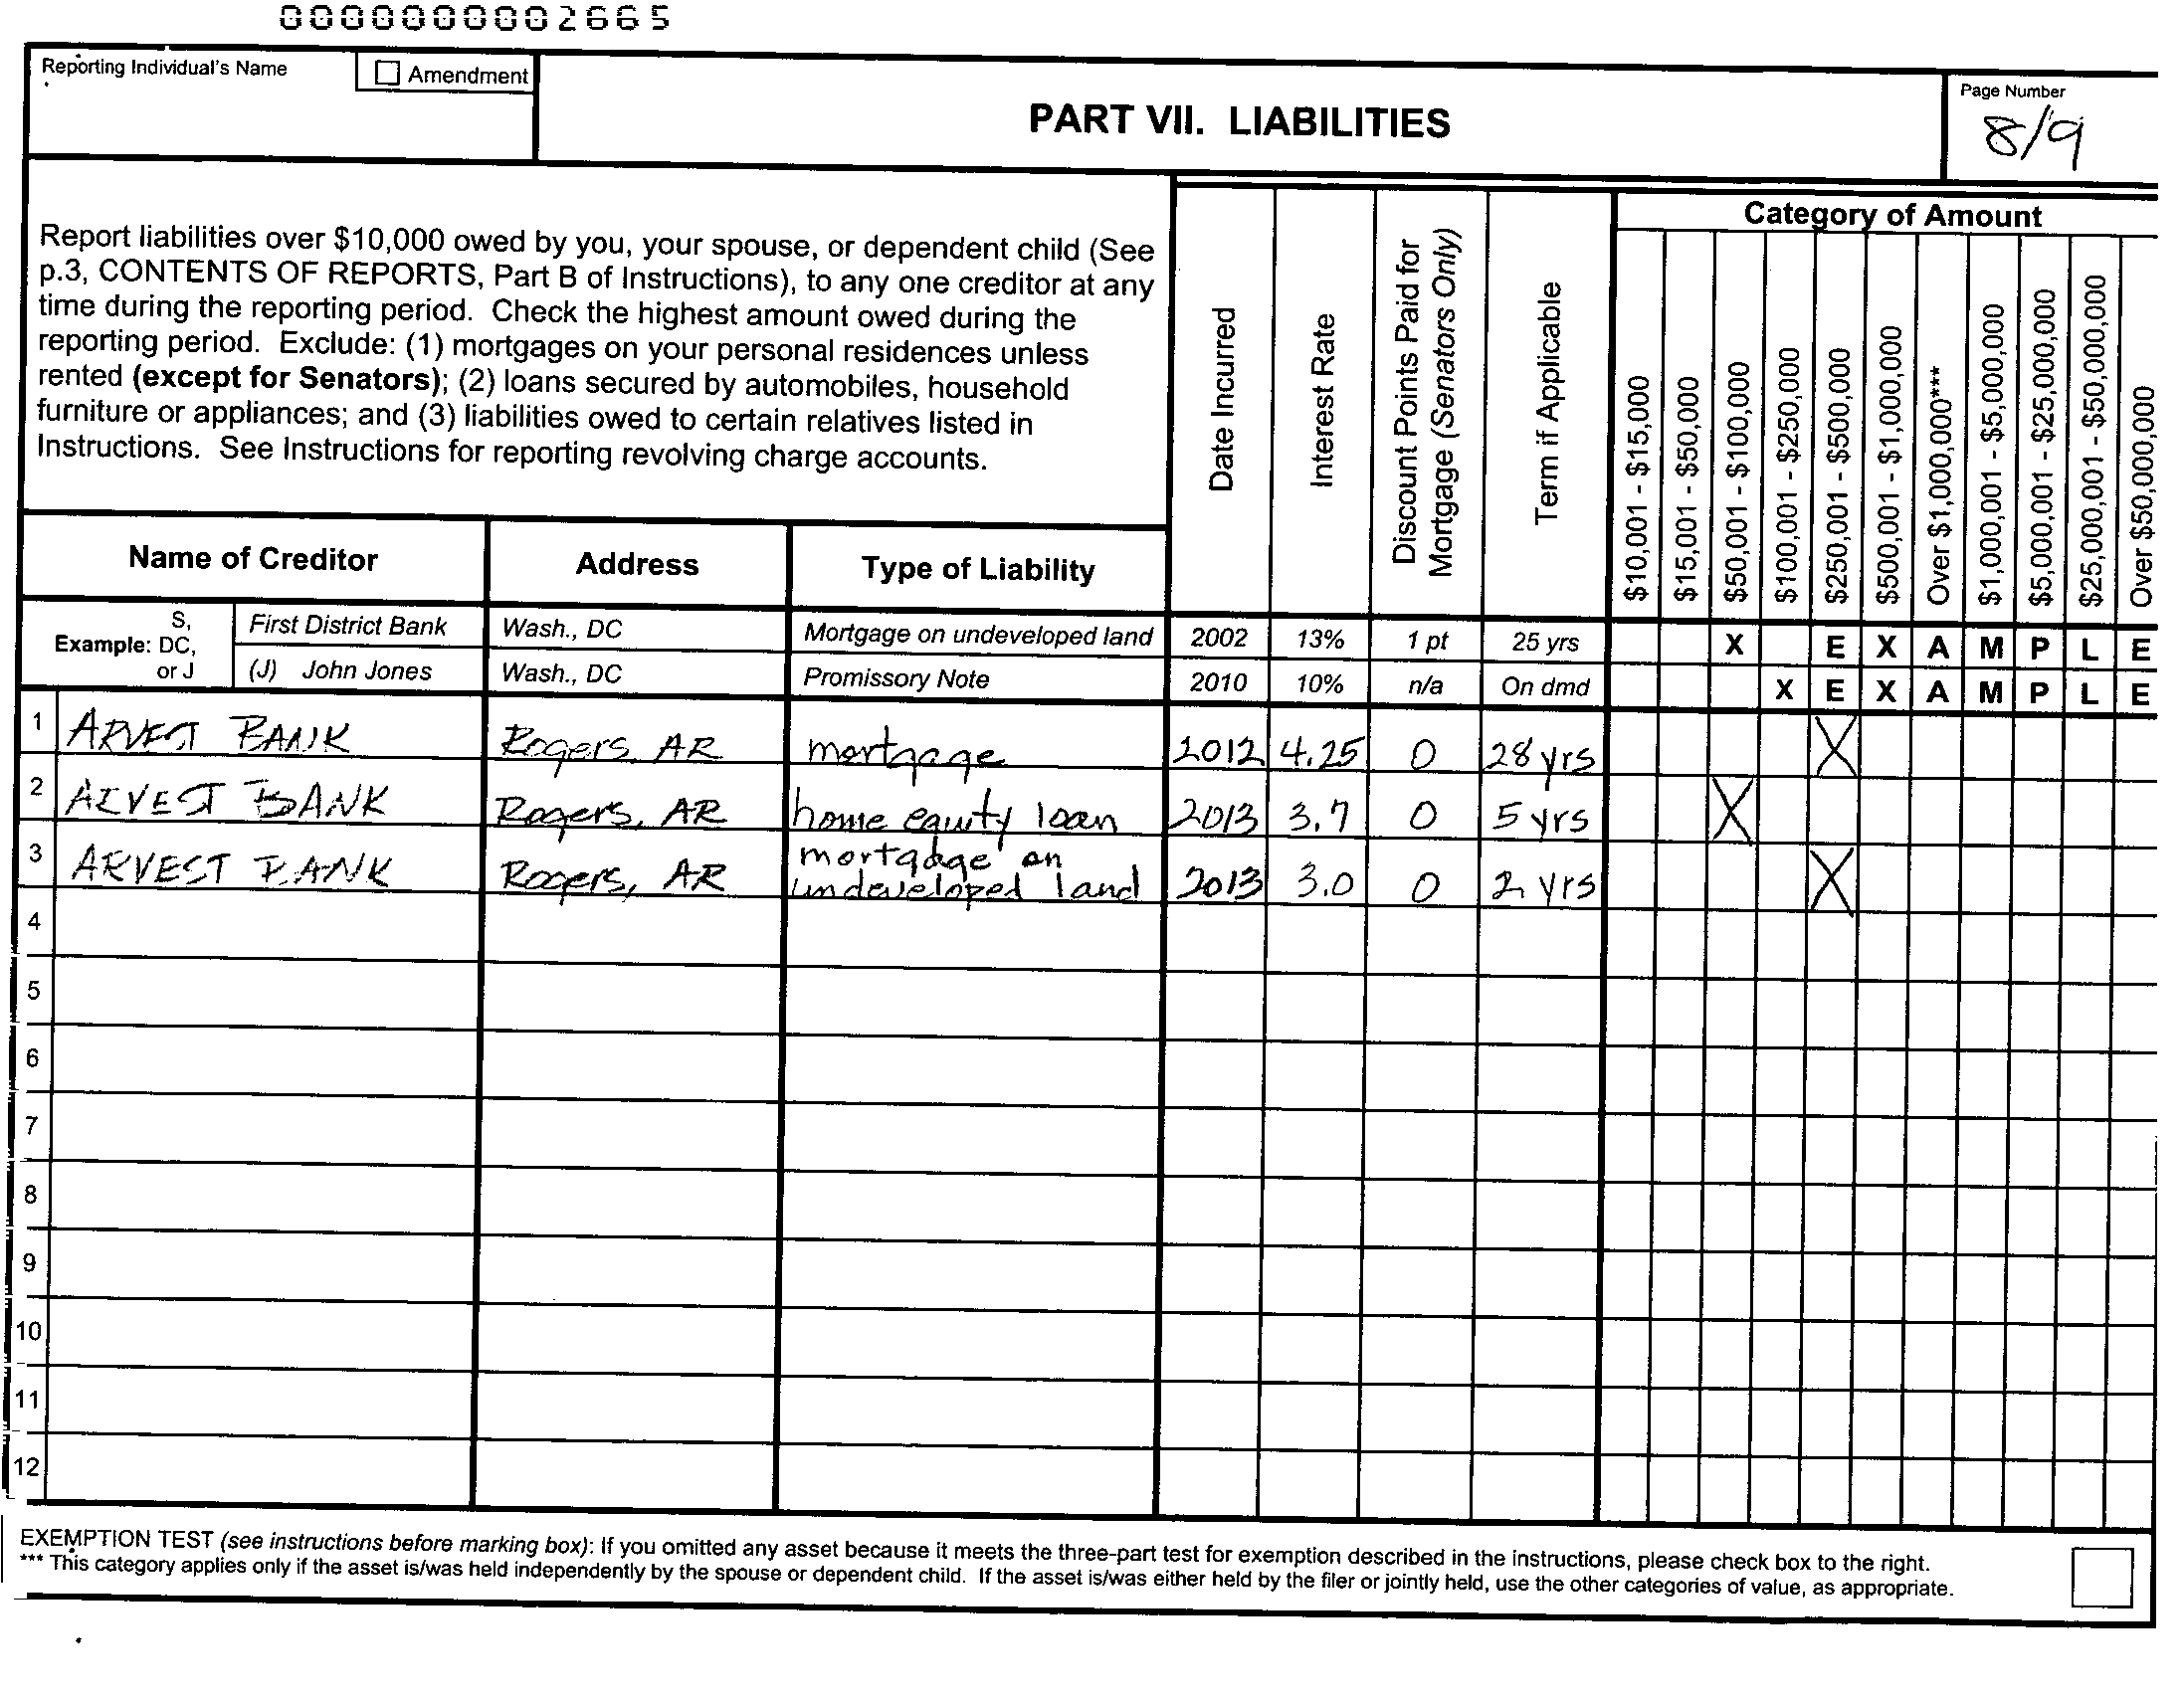 0000000002665
Reporting Individual's Name
Amendment
PART VII. LIABILITIES
Page Number
8/9
Report liabilities over $10,000 owed by you, your spouse, or dependent child (See
p.3, CONTENTS OF REPORTS, Part B of Instructions), to any one creditor at any
time during the reporting period. Check the highest amount owed during the
reporting period. Exclude: (1) mortgages on your personal residences unless
rented (except for Senators); (2) loans secured by automobiles, household
furniture or appliances; and (3) liabilities owed to certain relatives listed in
Instructions. See Instructions for reporting revolving charge accounts.
Date Incurred
Interest Rate
Discount Points Paid for
Mortgage (Senators Only)
Term if Applicable
Category of Amount
$10,001 - $15,000
$15,001 - $50,000
$50,001 - $100,000
$100,001 - $250,000
$250,001 - $500,000
$500,001 - $1,000,000
Over $1,000,000***
$1,000,001 - $5,000,000
$5,000,001 - $25,000,000
$25,000,001 - $50,000,000
Over $50,000,000
Name of Creditor Address Type of Liability
Example: S, DC, or J
First District Bank Wash., DC Mortgage on undeveloped land 2002 13% 1 pt 25 yrs X E X A M P L E
(J) John Jones Wash., DC Promissory Note 2010 10% n/a On dmd X E X A M P L E
1 ARVEST BANK Rogers, AR mortgage 2012 4.25 0 28 yrs X
2 ARVEST BANK Rogers, AR home equity loan 2013 3.7 0 5 yrs X
3 ARVEST BANK Rogers, AR mortgage on undeveloped land 2013 3.0 0 2 yrs X
4
5
6
7
8
9
10
11
12
EXEMPTION TEST (see instructions before marking box): If you omitted any asset because it meets the three-part test for exemption described in the instructions, please check box to the right.
*** This category applies only if the asset is/was held independently by the spouse or dependent child. If the asset is/was either held by the filer or jointly held, use the other categories of value, as appropriate.